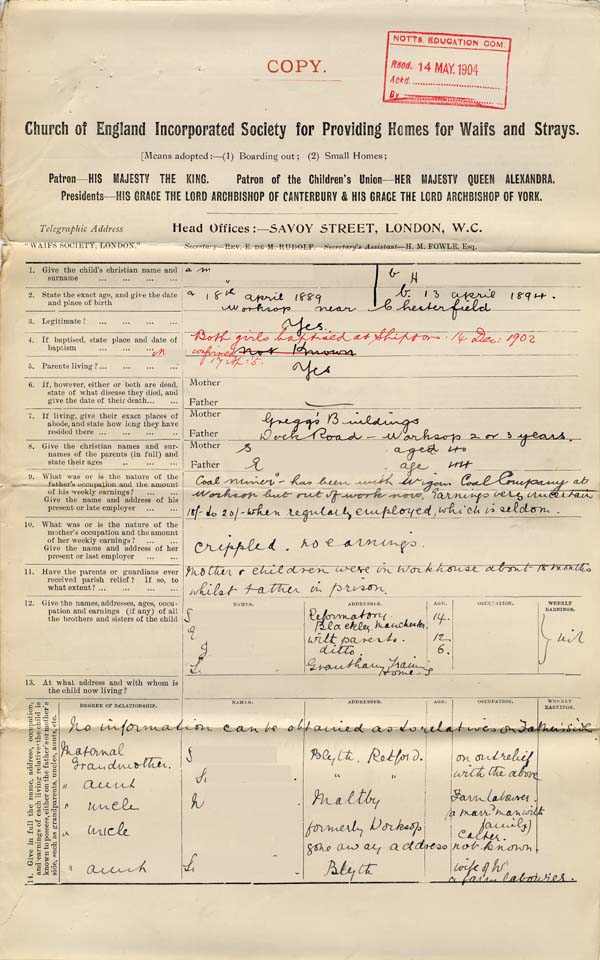 COPY.
NOTTS. EDUCATION COM.
Recd. 14 MAY. 1904
Ackd.
By
Church of England Incorporated Society for Providing Homes for Waifs and Strays.
[Means adopted:—(1) Boarding out; (2) Small Homes;
Patron—HIS MAJESTY THE KING. Patron of the Children's Union—HER MAJESTY QUEEN ALEXANDRA.
Presidents—HIS GRACE THE LORD ARCHBISHOP OF CANTERBURY & HIS GRACE THE LORD ARCHBISHOP OF YORK.
Telegraphic Address Head Offices:—SAVOY STREET, LONDON, W.C.
"WAIFS SOCIETY, LONDON." Secretary—REV. E. DE M. RUDOLF. Secretary's Assistant—H. M. FOWLE, Esq.
1. Give the child's christian name and surname
a M b H
2. State the exact age, and give the date and place of birth
a 18th April 1889 b. 13 April 1894.
Worksop near Chesterfield
3. Legitimate?
Yes.
4. If baptised, state place and date of baptism
Both girls baptised at Shipton. 14 Dec: 1902
M confirmed not known
5. Parents living?
Yes
6. If, however, either or both are dead, state of what disease they died, and give the date of their death
Mother
Father
7. If living, give their exact places of abode, and state how long they have resided there
Mother Gregg's Buildings
Father Dock Road - Worksop 2 or 3 years.
8. Give the christian names and surnames of the parents (in full) and state their ages
Mother S aged 40
Father E. age 44
9. What was or is the nature of the father's occupation and the amount of his weekly earnings?
Give the name and address of his present or late employer
Coal miner - has been with Wigan Coal Company at
Worksop but out of work now, Earnings very uncertain
18/- to 20/- when regularly employed, which is seldom.
10. What was or is the nature of the mother's occupation and the amount of her weekly earnings?
Give the name and address of her present or late employer
crippled. no earnings.
11. Have the parents or guardians ever received parish relief? If so, to what extent?
Mother & children were in Workhouse about 18 months
whilst Father in prison.
12. Give the names, addresses, ages, occupation and earnings (if any) of all the brothers and sisters of the child
NAMES. ADDRESSES. AGE. OCCUPATION. WEEKLY EARNINGS.
S Reformatory Blackley Manchester. 14.
E with parents. 12
J ditto. 6.
Grantham Training Home
nil
13. At what address and with whom is the child now living?
14. Give in full the name, address, occupation, and earnings of each living relative the child is known to possess, either on the father's or mother's side, such as grandparents, uncles, aunts, etc.
DEGREE OF RELATIONSHIP. NAMES. ADDRESSES. AGE. OCCUPATION. WEEKLY EARNINGS.
No information can be obtained as to relatives on Father's side.
Maternal Grandmother. S Blyth. Retford. on out relief
" aunt " " with the above
" uncle W Maltby Farm labourer.
(a marr'd man with family)
" uncle formerly Worksop
gone away address not known.
" aunt Blyth wife of W
a farm labourer.